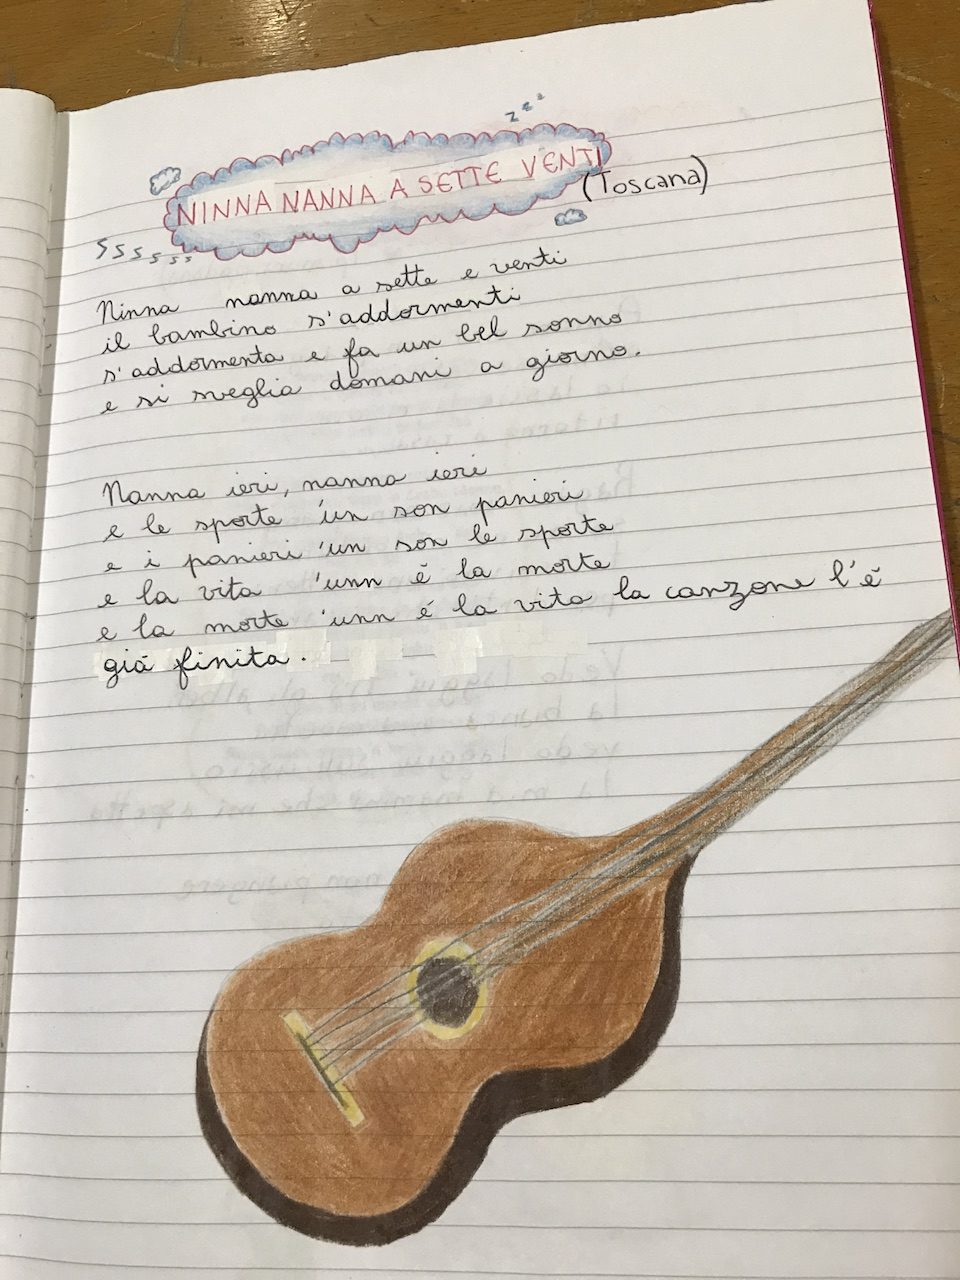 zzz
NINNA NANNA A SETTE VENTI
(Toscana)
ssssss
Ninna nanna a sette e venti
il bambino s'addormenti
s'addormenta e fa un bel sonno
e si sveglia domani a giorno.
Nanna ieri, nanna ieri
e le sporte 'un son panieri
e i panieri 'un son le sporte
e la vita 'unn é la morte
e la morte 'unn é la vita la canzone l'é
giá finita.